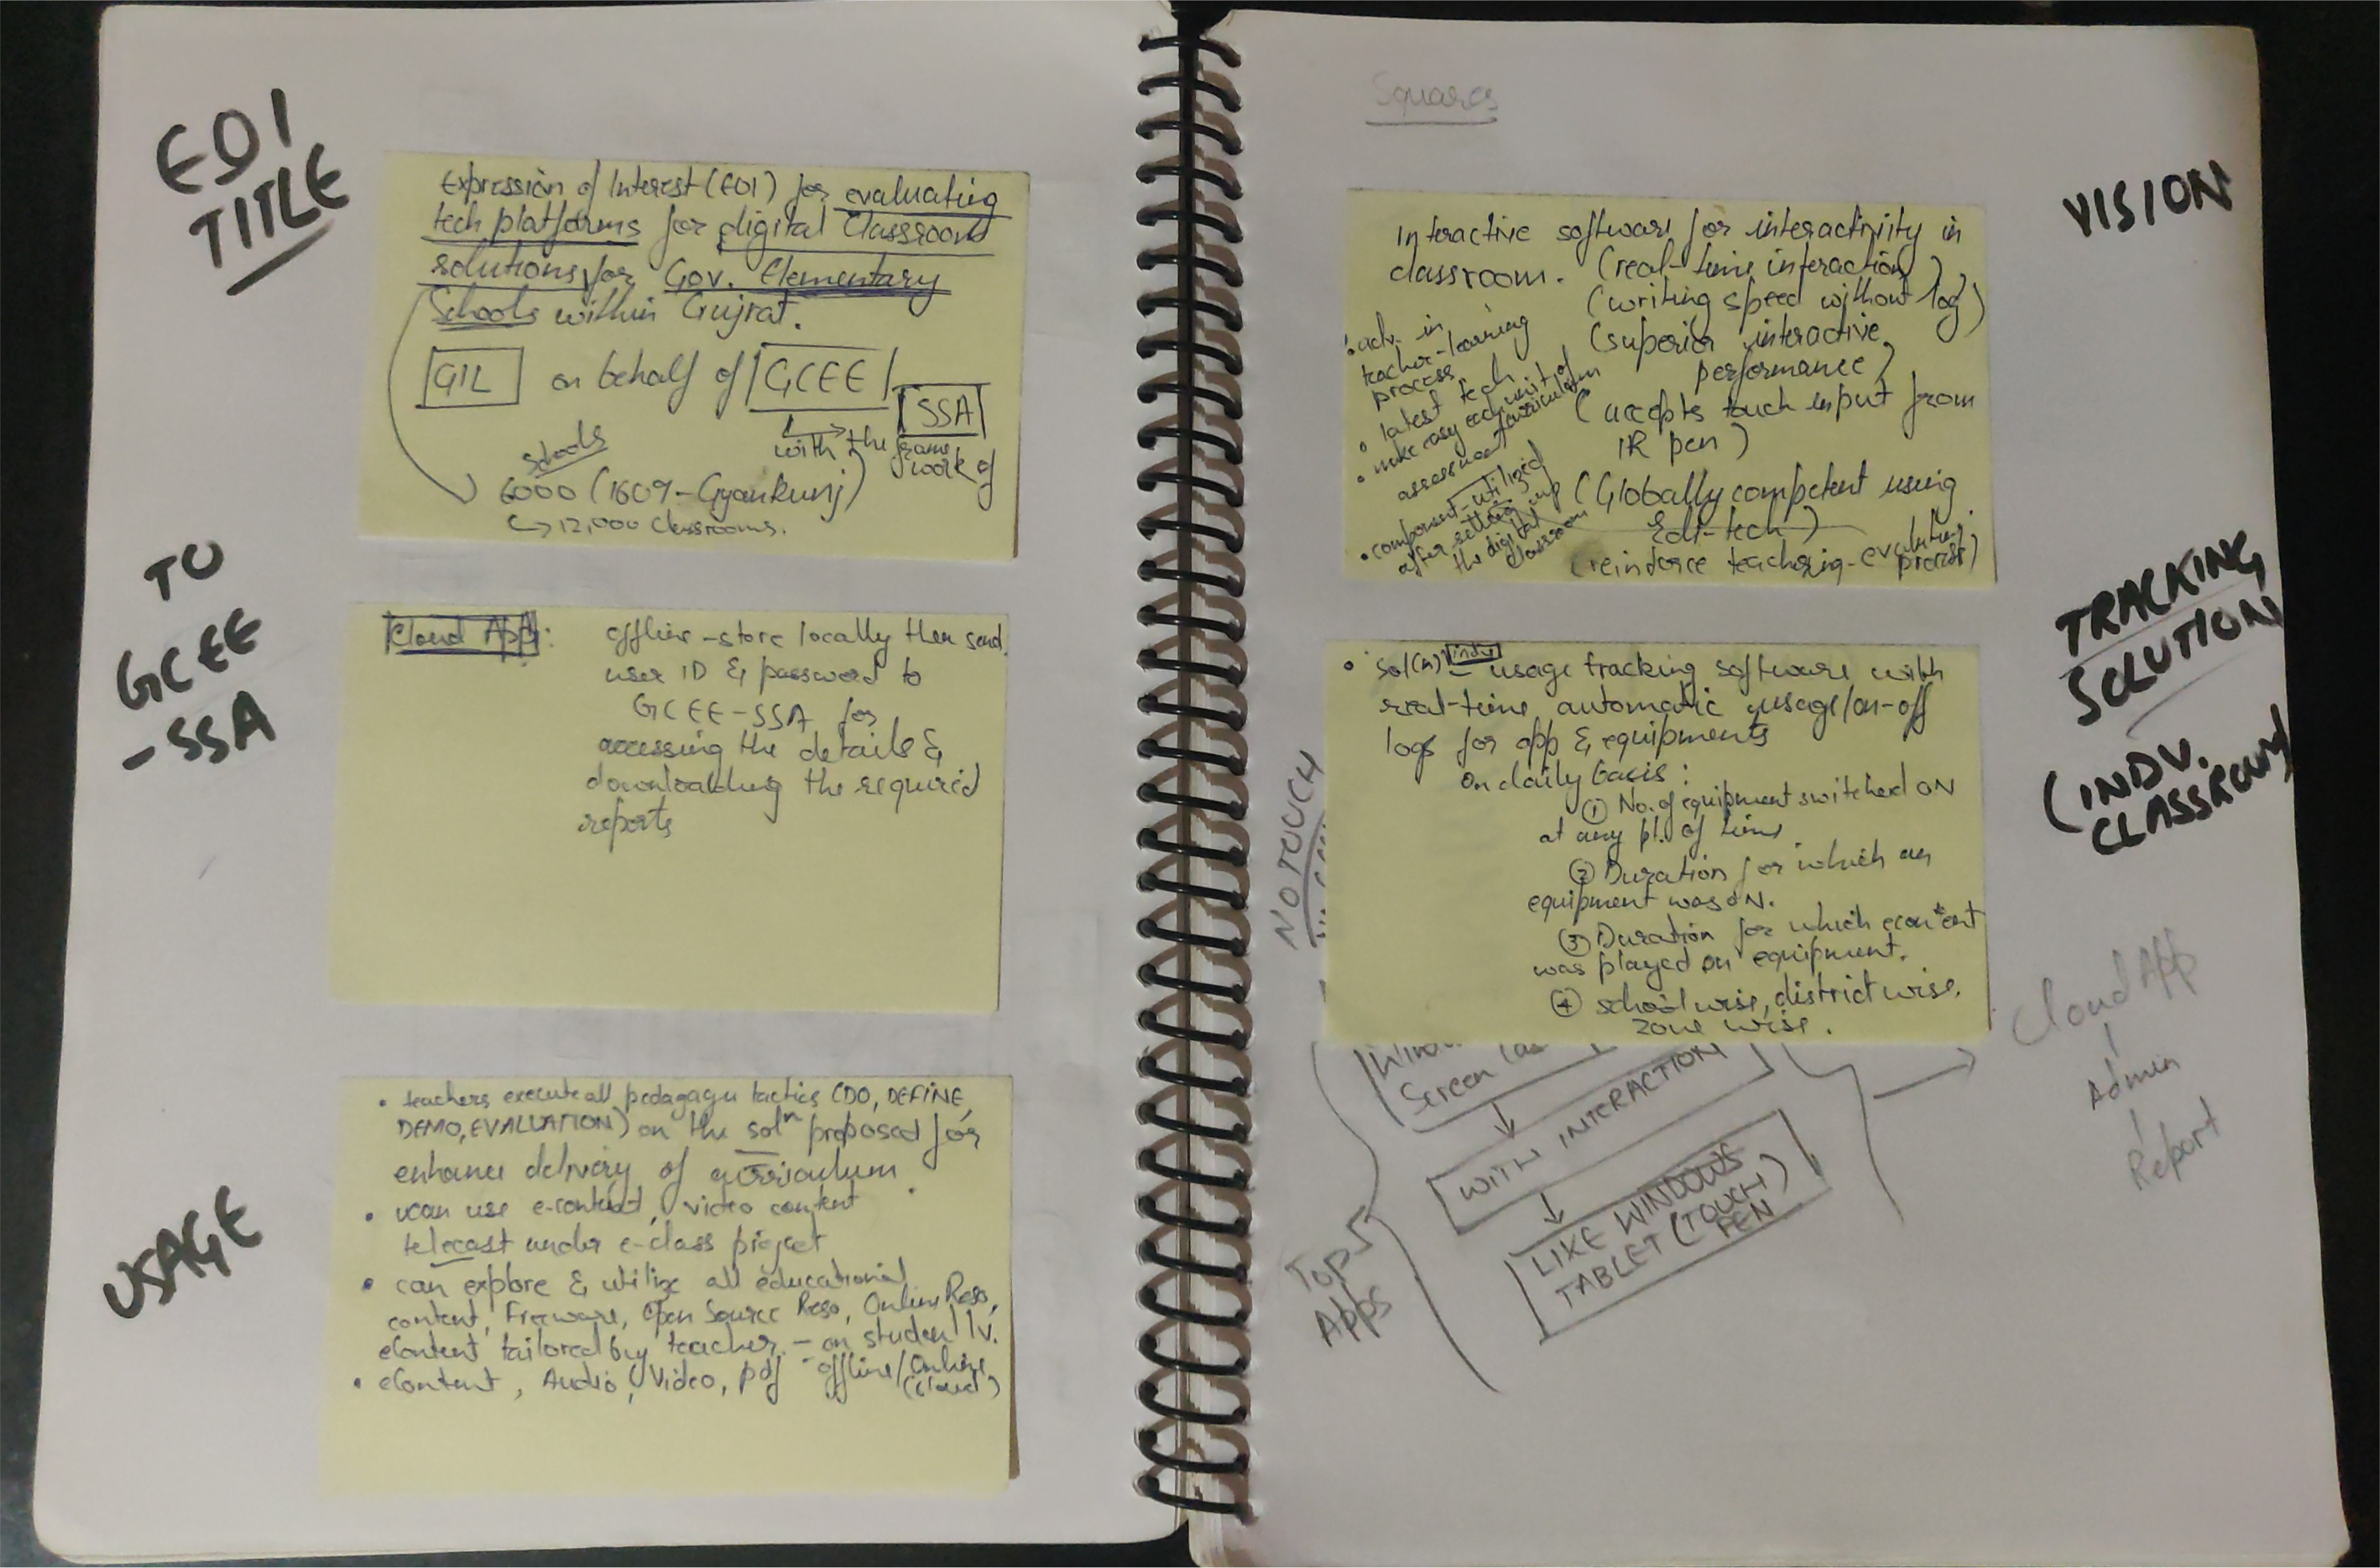 EOI
TITLE
Expression of Interest (EOI) for evaluating
tech platforms for digital Classroom
solutions for Gov. Elementary
Schools within Gujrat.
GIL on behalf of GCEE
SSA
with the frame
work of
Schools
6000 (1609-Gyankunj)
↳ 12,000 Classrooms.
TO
GCEE
-SSA
Cloud App: offline-store locally then send
user ID & password to
GCEE-SSA for
accessing the details &
downloading the required
reports
USAGE
• teachers execute all pedagagy tactics (DO, DEFINE,
DEMO, EVALUATION) on the solⁿ proposed for
enhance delivery of curriculum
• can use e-content, video content
telecast under e-class project
• can explore & utilize all educational
content, Freeware, Open Source Reso, Online Reso,
eContent tailored by teacher - on student lv.
• eContent, Audio, Video, pdf - offline/Online
(cloud)
Squares
VISION
Interactive software for interactivity in
classroom. (real-time interaction)
(writing speed without lag)
(superior interactive
performance)
(accepts touch input from
IR pen)
(Globally competent using
Edu-tech)
(reinforce teaching-evaluation
process)
• adv. in
teacher-learning
process
• latest tech
• make easy each unit of
assessment curriculum
• component-utilized
after setting up
the digital
classroom
TRACKING
SOLUTION
(INDV.
CLASSROOM)
• sol(n) indv - usage tracking software with
real-time automatic usage/on-off
logs for app & equipments
on daily basis:
① No. of equipment switched ON
at any pt. of time
② Duration for which an
equipment was ON.
③ Duration for which econtent
was played on equipment.
④ school wise, district wise.
zone wise.
NO TOUCH
Screen
WITH INTERACTION
LIKE WINDOWS
TABLET (TOUCH)
PEN
Top 5
Apps
Cloud App
Admin
Report